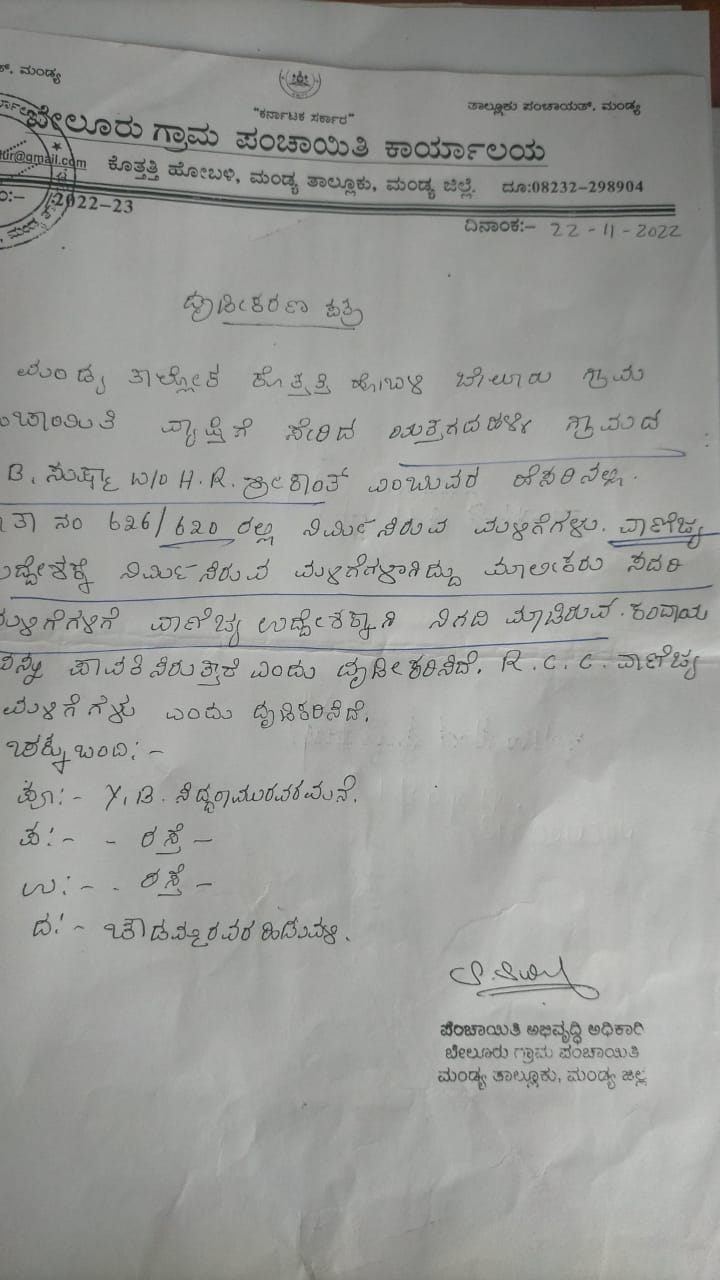 ತ್, ಮಂಡ್ಯ
"ಕರ್ನಾಟಕ ಸರ್ಕಾರ"
ತಾಲ್ಲೂಕು ಪಂಚಾಯತ್, ಮಂಡ್ಯ
ಬೇಲೂರು ಗ್ರಾಮ ಪಂಚಾಯಿತಿ ಕಾರ್ಯಾಲಯ
ur@gmail.com ಕೊತ್ತತ್ತಿ ಹೋಬಳಿ, ಮಂಡ್ಯ ತಾಲ್ಲೂಕು, ಮಂಡ್ಯ ಜಿಲ್ಲೆ. ದೂ:08232-298904
:- 2022-23
ದಿನಾಂಕ:- 22-11-2022
ದೃಢೀಕರಣ ಪತ್ರ
ಮಂಡ್ಯ ತಾಲ್ಲೋಕ ಕೊತ್ತತ್ತಿ ಹೋಬಳಿ ಬೇಲೂರು ಗ್ರಾಮ
ಂಚಾಯಿತಿ ವ್ಯಾಪ್ತಿಗೆ ಸೇರಿದ ಗ್ರಾಮದ
B. W/o H.R. ಶ್ರೀಕಾಂತ್ ಎಂಬುವರ ಹೆಸರಿನಲ್ಲಿ.
ತಾ ನಂ 626/620 ರಲ್ಲಿ ನಿರ್ಮಿಸಿರುವ ಮಳಿಗೆಗಳು. ವಾಣಿಜ್ಯ
ದ್ದೇಶಕ್ಕೆ ನಿರ್ಮಿಸಿರುವ ಮಳಿಗೆಗಳಾಗಿದ್ದು ಮಾಲೀಕರು ಸದರಿ
ಮಳಿಗೆಗಳಿಗೆ ವಾಣಿಜ್ಯ ಉದ್ದೇಶಕ್ಕಾಗಿ ನಿಗದಿ ಮಾಡಿರುವ ಕಂದಾಯ
ಪಾವತಿಸಿರುತ್ತಾರೆ ಎಂದು ದೃಢೀಕರಿಸಿದೆ. R.C.C. ವಾಣಿಜ್ಯ
ಮಳಿಗೆಗಳು ಎಂದು ದೃಢಿಕರಿಸಿದೆ.
ಚಕ್ಕುಬಂದಿ:-
ಪೂ:- Y.B. ಸಿದ್ದರಾಮುರವರಮನೆ.
ಪ:- - ರಸ್ತೆ -
ಉ:- - ರಸ್ತೆ -
ದ:- ಚೌಡಮ್ಮರವರ ಹಿಡುವಳಿ.
ಪಂಚಾಯಿತಿ ಅಭಿವೃದ್ಧಿ ಅಧಿಕಾರಿ
ಬೇಲೂರು ಗ್ರಾಮ ಪಂಚಾಯಿತಿ
ಮಂಡ್ಯ ತಾಲ್ಲೂಕು, ಮಂಡ್ಯ ಜಿಲ್ಲೆ